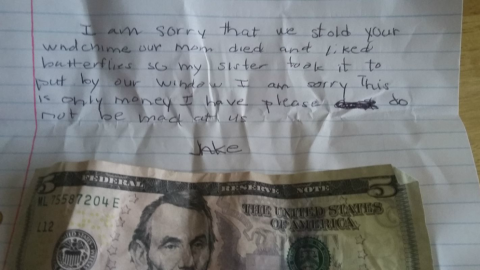 I am sorry that we stold your
windchime our mom died and liked
butterflies so my sister took it to
put by our window I am sorry This
is only money I have please do
not be mad at us
Jake
FEDERAL RESERVE NOTE
5
5
ML75587204E
L12
THE UNITED STATES
OF AMERICA